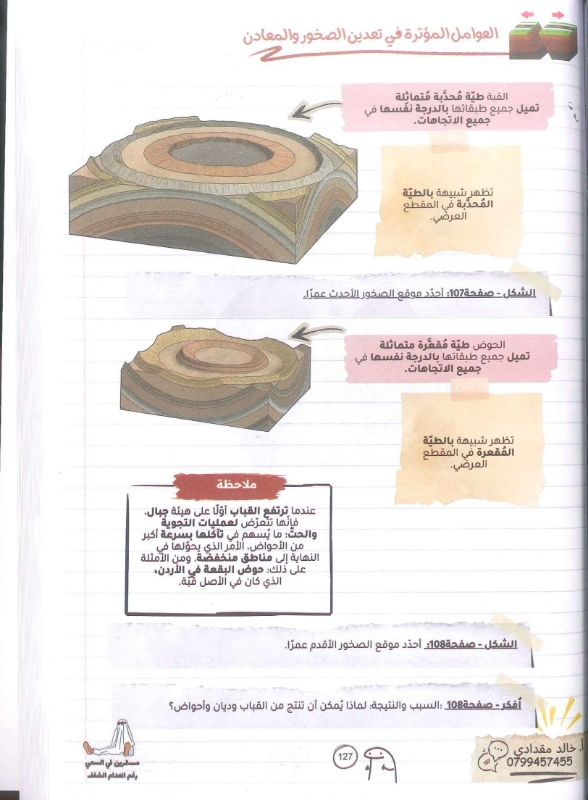 العوامل المؤثرة في تعدين الصخور والمعادن
القبة طيّة مُحدَّبة مُتماثلة
تميل جميع طبقاتها بالدرجة نفسها في
جميع الاتجاهات.
تظهر شبيهة بالطيّة
المُحدّبة في المقطع
العرضي.
الشكل - صفحة107: أحدّد موقع الصخور الأحدث عمرًا.
الحوض طيّة مُقعَّرة متماثلة
تميل جميع طبقاتها بالدرجة نفسها في
جميع الاتجاهات.
تظهر شبيهة بالطيّة
المُقعرة في المقطع
العرضي.
ملاحظة
عندما ترتفع القباب أوّلًا على هيئة جبال،
فإنّها تتعرّض لعمليات التجوية
والحتّ؛ ما يُسهم في تآكلها بسرعة أكبر
من الأحواض، الأمر الذي يحوّلها في
النهاية إلى مناطق منخفضة. ومن الأمثلة
على ذلك: حوض البقعة في الأردن،
الذي كان في الأصل قُبّة.
الشكل - صفحة108: أحدّد موقع الصخور الأقدم عمرًا.
أفكر - صفحة108 :السبب والنتيجة: لماذا يُمكن أن تنتج من القباب وديان وأحواض؟
أ. خالد مقدادي
0799457455
127
مستمرين في السعي
رغم انعدام الشغف